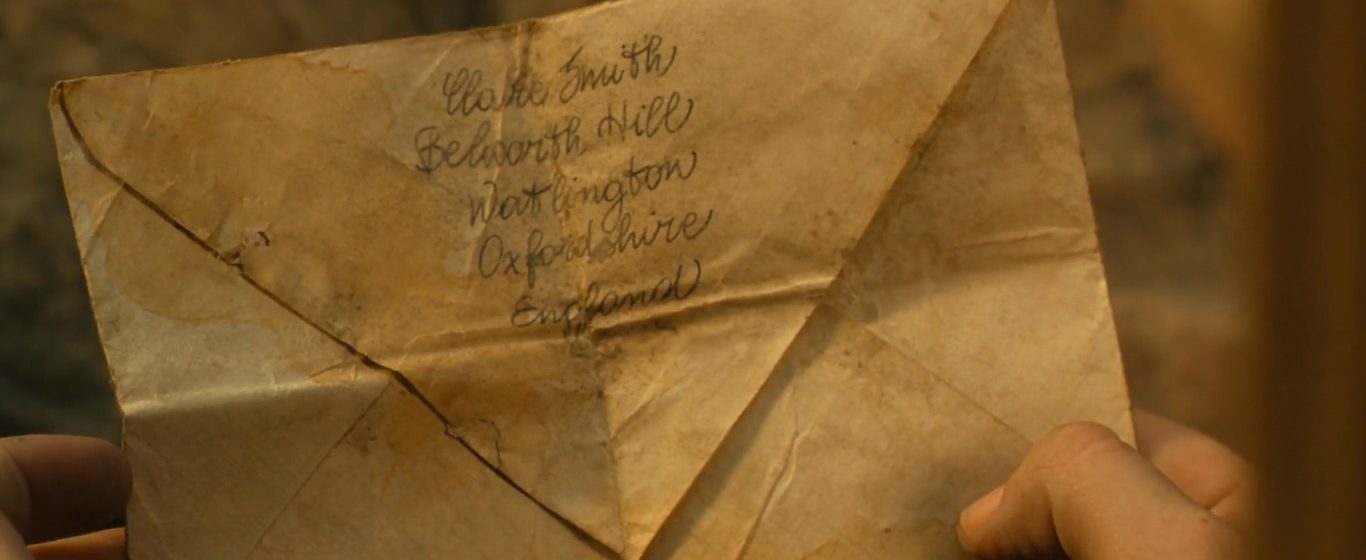 Clare Smith
Belworth Hill
Watlington
Oxfordshire
England